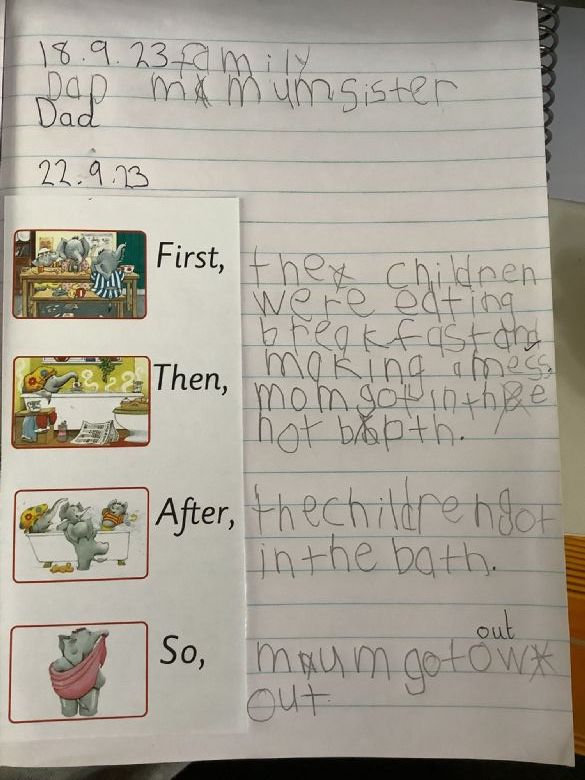 18.9.23 family
Dap m mum sister
Dad
22.9.23
First, the children
were eating
breakfast and
Then, making a mess.
mom got in the
hot bapth.
After, the children got
in the bath.
out
So, mum got ow
out